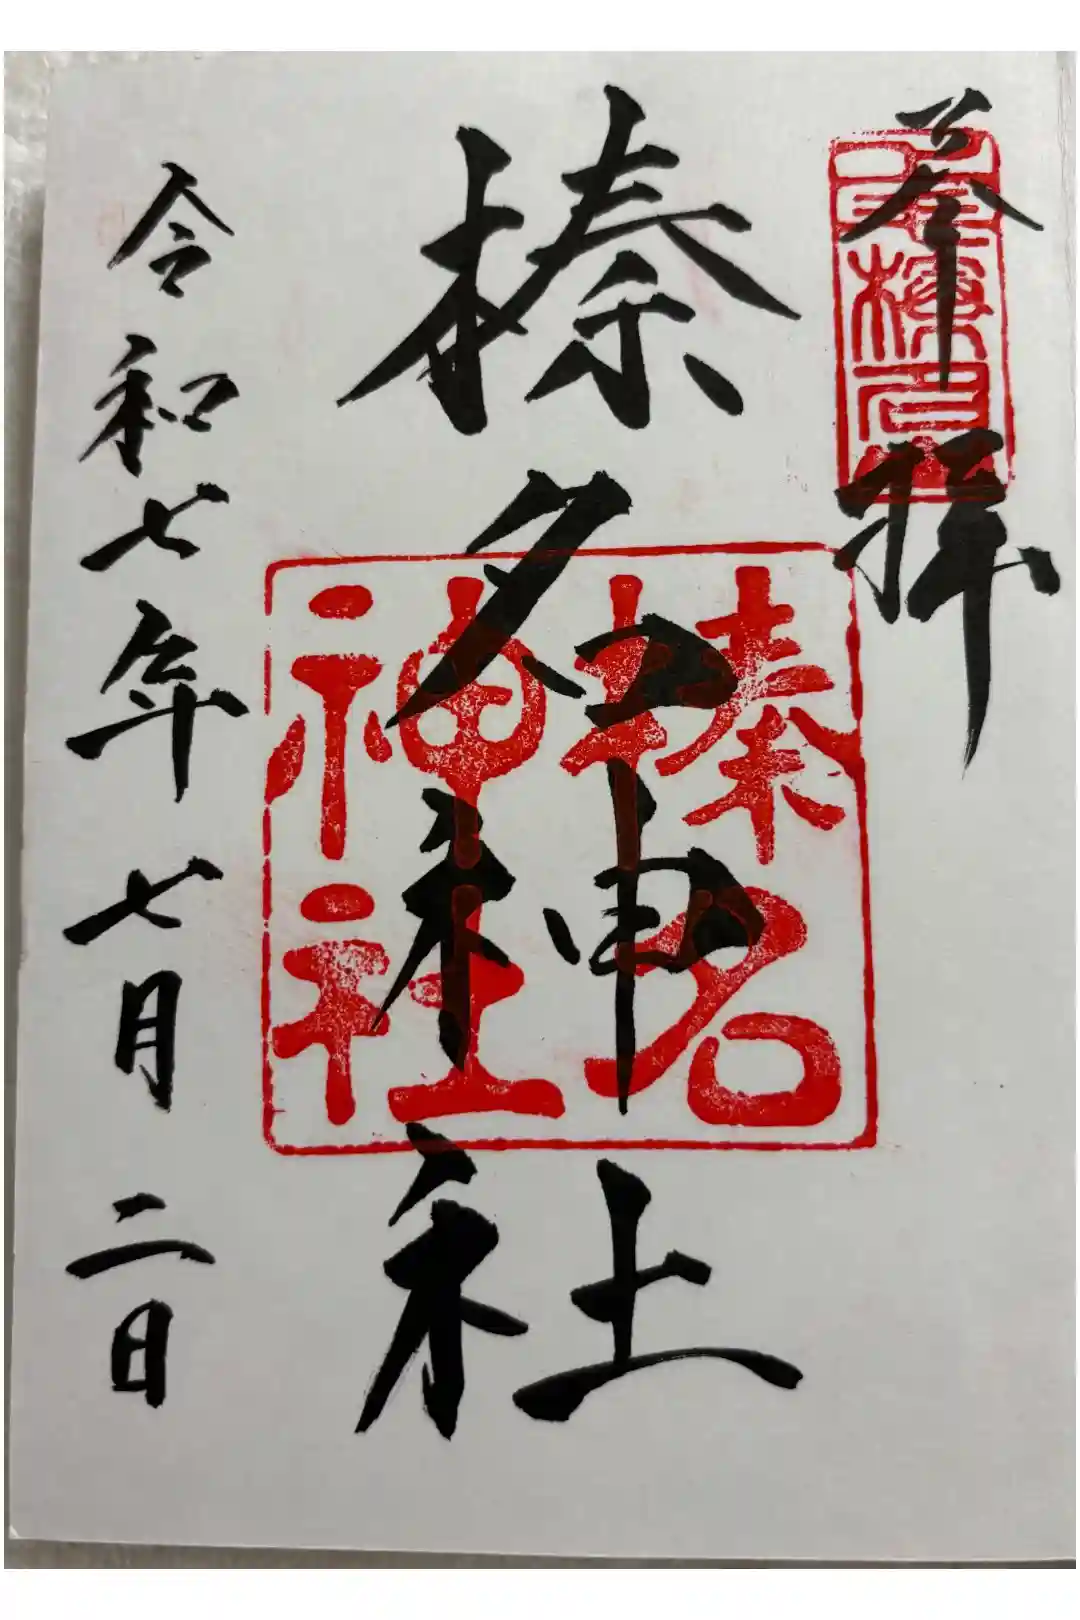 奉拝
榛名神社
榛名
神社
令和七年七月二日